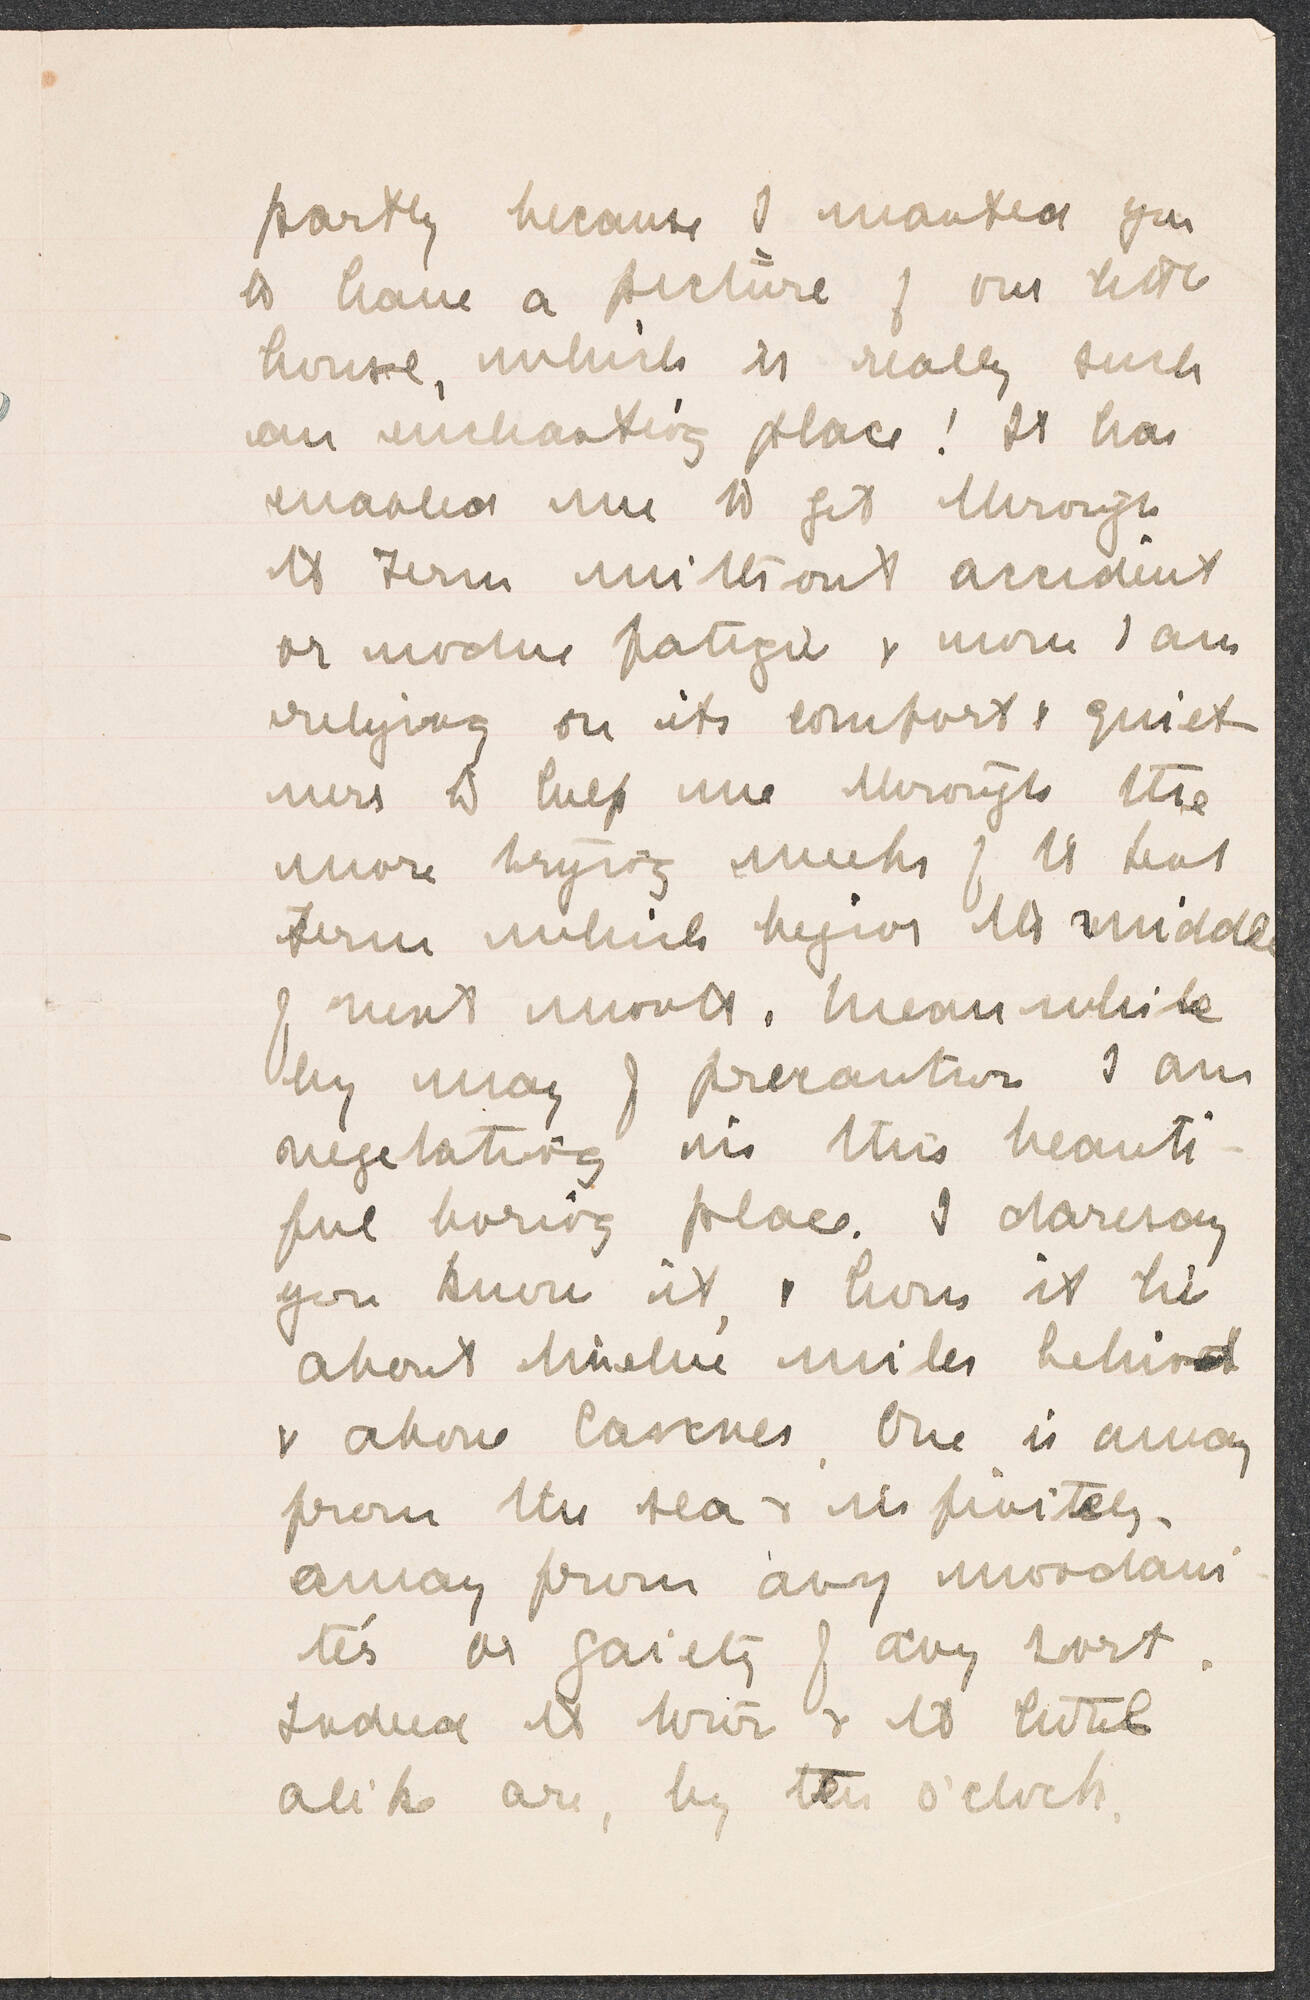 partly because I wanted you
to have a picture of our little
house, which is really such
an enchanting place! It has
enabled me to get through
the term without accident
or undue fatigue & now I am
relying on its comfort & quiet
ness to help me through the
more trying weeks of the next
term which begins the middle
of next month. Meanwhile
by way of precaution I am
vegetating in this beauti-
ful boring place. I daresay
you know it, & how it lie
about twelve miles behind
& above Cannes. One is away
from the sea & infinitely
away from any mondani
tés or gaiety of any sort.
Indeed the town & the hotel
alike are, by ten o'clock,